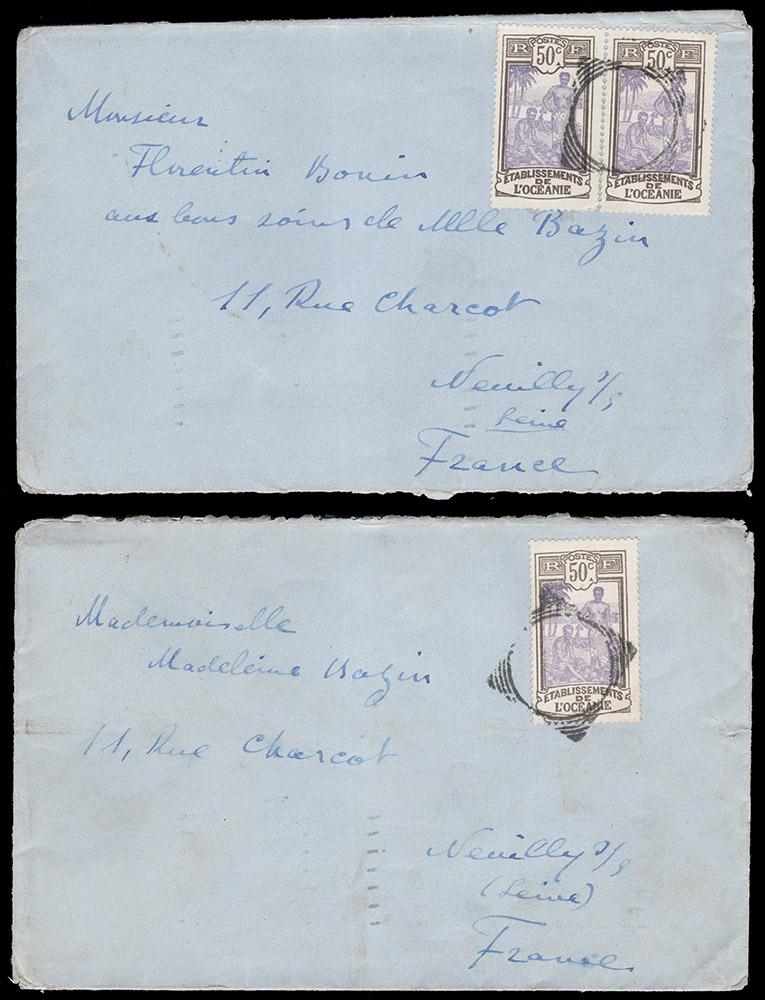 R POSTES F
50c
R POSTES F
50c
ÉTABLISSEMENTS
DE
L'OCÉANIE
ÉTABLISSEMENTS
DE
L'OCÉANIE
Monsieur
Florentin Bouin
aux bons soins de Mlle Bazin
11, Rue Charcot
Neuilly s/s
Seine
France
R POSTES F
50c
ÉTABLISSEMENTS
DE
L'OCÉANIE
Mademoiselle
Madeleine Bazin
11, Rue Charcot
Neuilly s/s
(Seine)
France